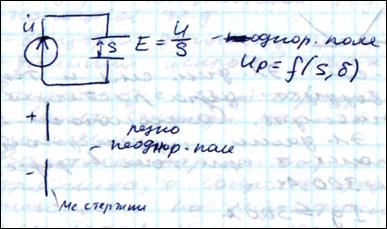 U̇ S E = U/S - однор. поле
Uр = f(S, δ)
+ резко
- неоднор. поле
Ме стержни